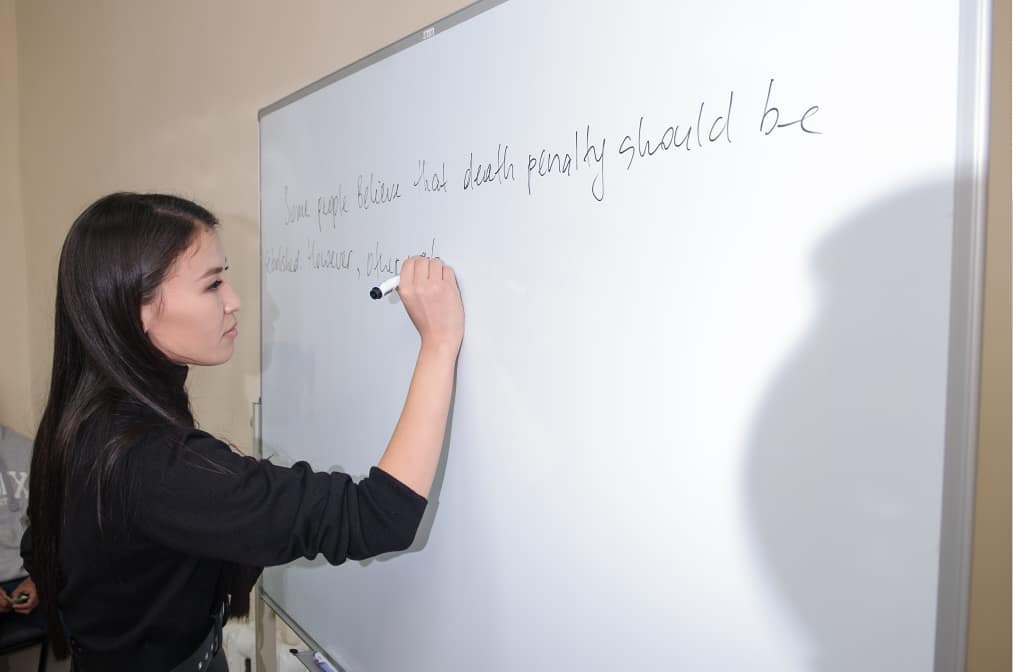 Some people Believe that death penalty should be
However, other